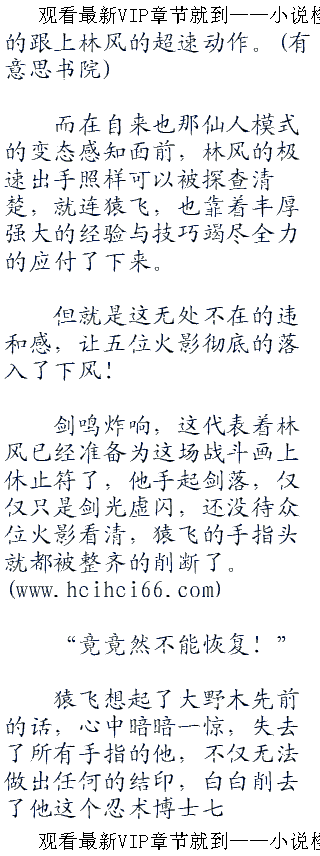 观看最新VIP章节就到——小说检
的跟上林风的超速动作。(有
意思书院)
而在自来也那仙人模式
的变态感知面前，林风的极
速出手照样可以被探查清
楚，就连猿飞，也靠着丰厚
强大的经验与技巧竭尽全力
的应付了下来。
但就是这无处不在的违
和感，让五位火影彻底的落
入了下风！
剑鸣炸响，这代表着林
风已经准备为这场战斗画上
休止符了，他手起剑落，仅
仅只是剑光虚闪，还没待众
位火影看清，猿飞的手指头
就都被整齐的削断了。
(www.hcihci66.com)
“竟竟然不能恢复！”
猿飞想起了大野木先前
的话，心中暗暗一惊，失去
了所有手指的他，不仅无法
做出任何的结印，白白削去
了他这个忍术博士七
观看最新VIP章节就到——小说检